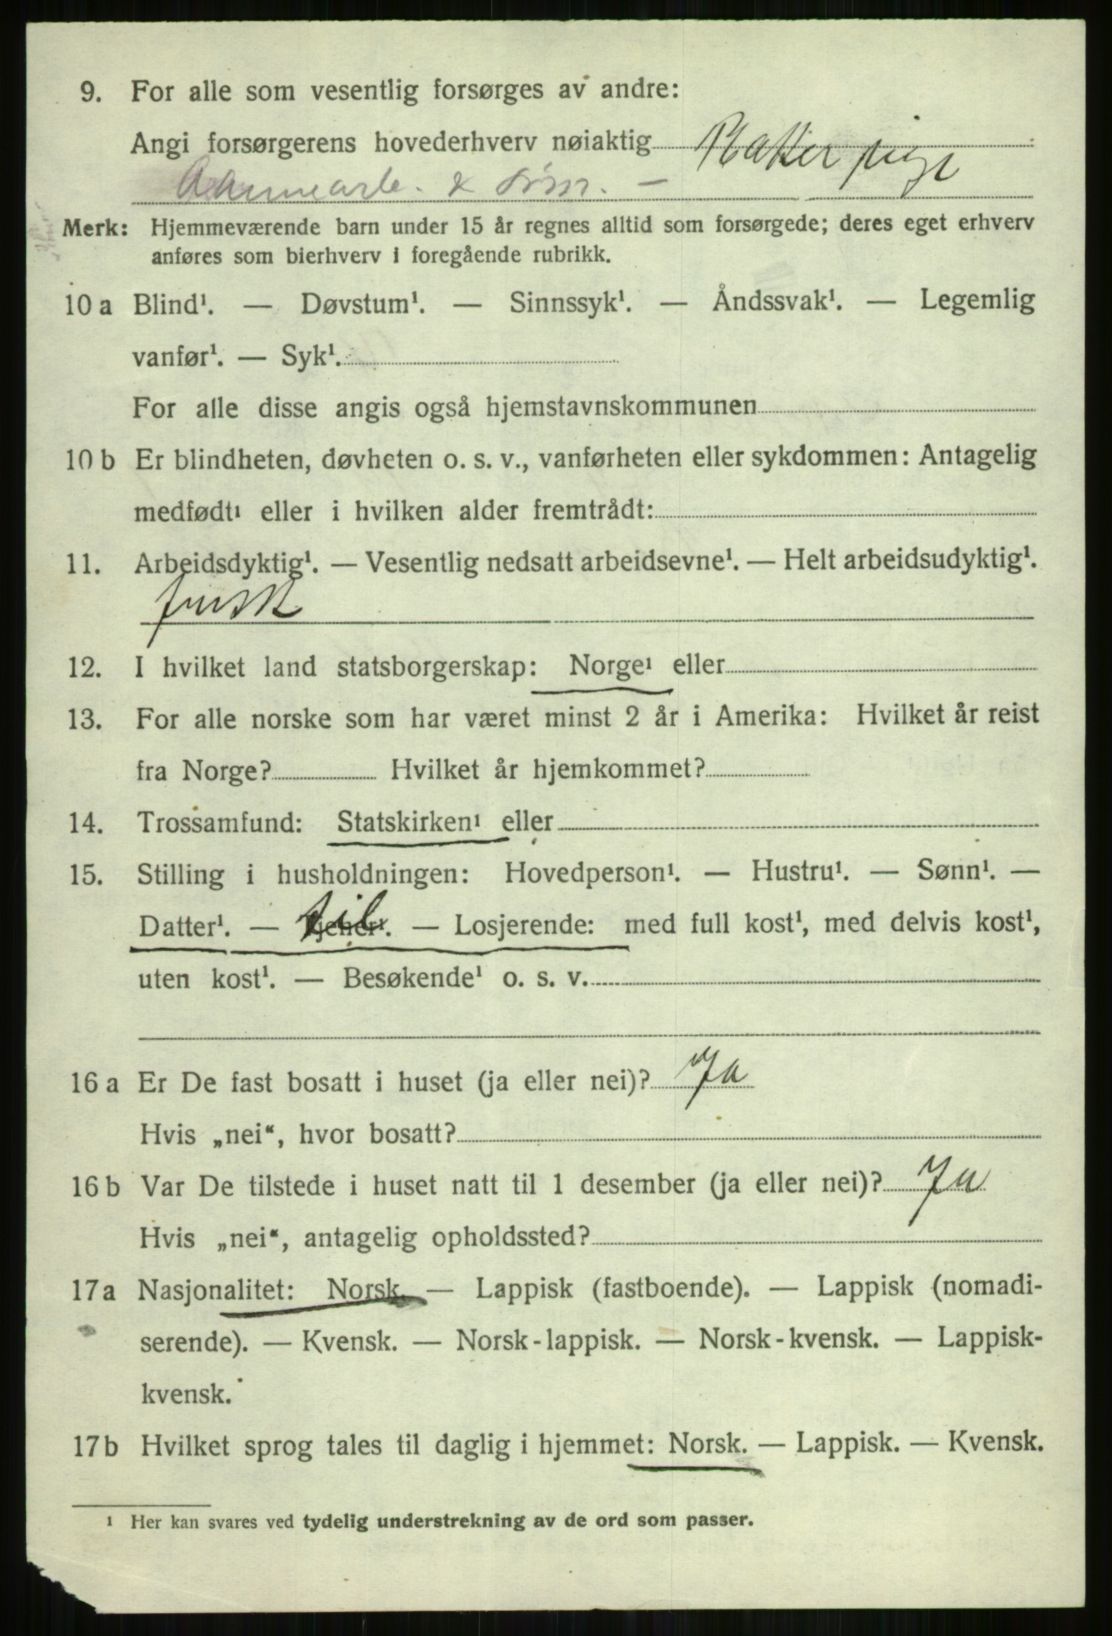 9. For alle som vesentlig forsørges av andre:
Angi forsørgerens hovederhverv nøiaktig
& søm. —
Merk: Hjemmeværende barn under 15 år regnes alltid som forsørgede; deres eget erhverv
anføres som bierhverv i foregående rubrikk.
10 a Blind¹. — Døvstum¹. — Sinnssyk¹. — Åndssvak¹. — Legemlig
vanfør¹. — Syk¹.
For alle disse angis også hjemstavnskommunen
10 b Er blindheten, døvheten o. s. v., vanførheten eller sykdommen: Antagelig
medfødt¹ eller i hvilken alder fremtrådt:
11. Arbeidsdyktig¹. — Vesentlig nedsatt arbeidsevne¹. — Helt arbeidsudyktig¹.
frisk
12. I hvilket land statsborgerskap: Norge¹ eller
13. For alle norske som har været minst 2 år i Amerika: Hvilket år reist
fra Norge? Hvilket år hjemkommet?
14. Trossamfund: Statskirken¹ eller
15. Stilling i husholdningen: Hovedperson¹. — Hustru¹. — Sønn¹. —
Datter¹. — tjener¹. til — Losjerende: med full kost¹, med delvis kost¹,
uten kost¹. — Besøkende¹ o. s. v.
16 a Er De fast bosatt i huset (ja eller nei)? Ja
Hvis „nei“, hvor bosatt?
16 b Var De tilstede i huset natt til 1 desember (ja eller nei)? Ja
Hvis „nei“, antagelig opholdssted?
17 a Nasjonalitet: Norsk. — Lappisk (fastboende). — Lappisk (nomadi-
serende). — Kvensk. — Norsk-lappisk. — Norsk-kvensk. — Lappisk-
kvensk.
17 b Hvilket sprog tales til daglig i hjemmet: Norsk. — Lappisk. — Kvensk.
¹ Her kan svares ved tydelig understrekning av de ord som passer.